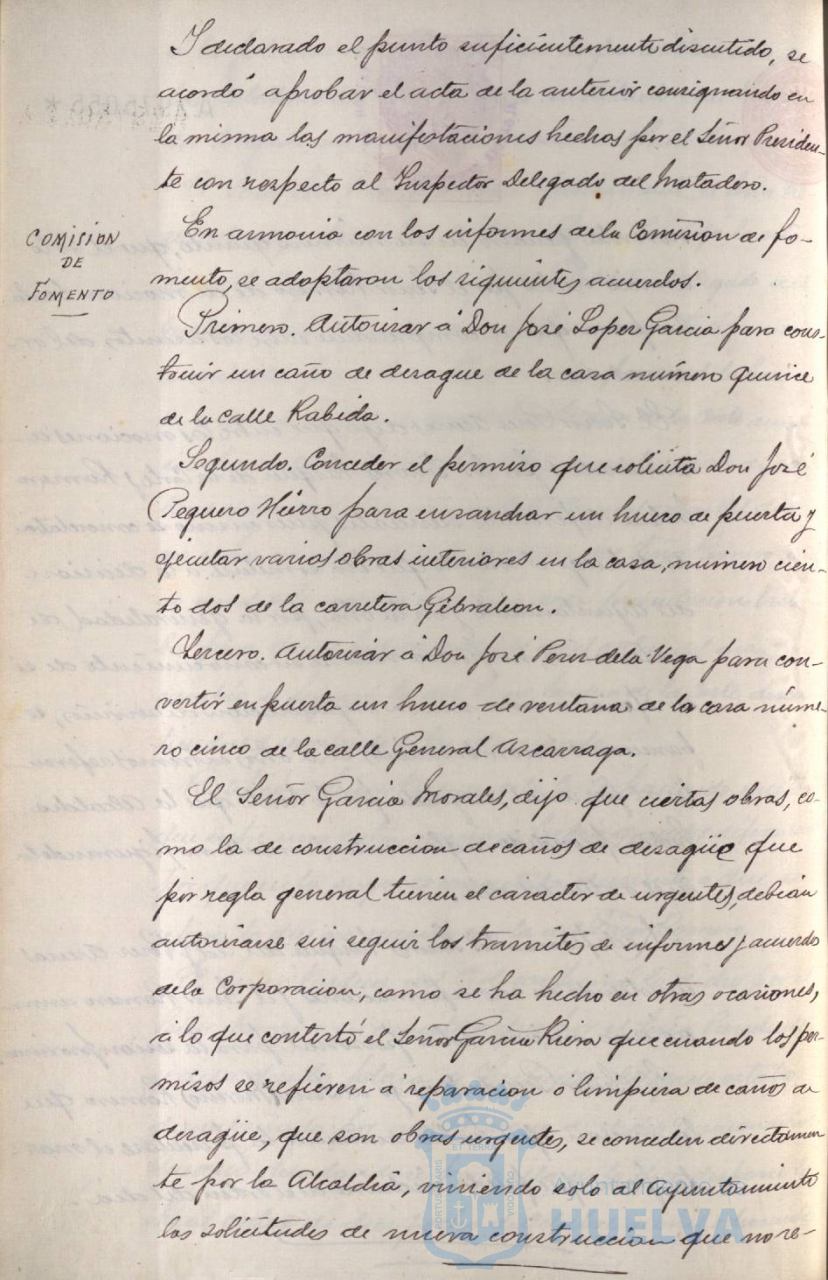 I declarado el punto suficientemente discutido, se
acordó aprobar el acta de la anterior consignando en
la misma las manifestaciones hechas por el Señor Presiden-
te con respecto al Inspector Delegado del Matadero.
COMISION
DE
FOMENTO
En armonia con los informes de la Comision de fo-
mento, se adoptaron los siguientes acuerdos.
Primero. Autorizar á Don José Lopez Garcia para cons-
truir un caño de desague de la casa número quince
de la calle Rabida.
Segundo. Conceder el permiso que solicita Don José
Peguero Hierro para ensanchar un hueco de puerta y
ejecutar varias obras interiores en la casa, número cien-
to dos de la carretera Gibraleon.
Tercero. Autorizar á Don José Perez de la Vega para con-
vertir en puerta un hueco de ventana de la casa núme-
ro cinco de la calle General Azcarraga.
El Señor Garcia Morales, dijo que ciertas obras, co-
mo la de construccion de caños de desagüe que
por regla general tienen el caracter de urgentes, debian
autorizarse sin seguir los tramites de informes y acuerdo
de la Corporacion, como se ha hecho en otras ocasiones,
á lo que contestó el Señor Garcia Riera que cuando los per-
misos se refieren á reparacion ó limpieza de caños de
desagüe, que son obras urgentes, se conceden directamen
te por la Alcaldia, viniendo solo al Ayuntamiento
las solicitudes de nueva construccion que no re-
HUELVA